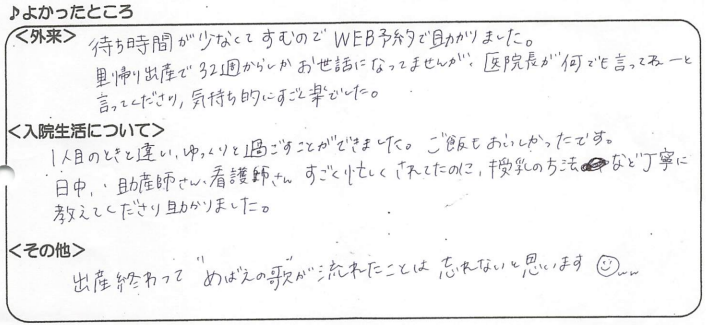 ♪よかったところ
<外来>
待ち時間が少なくてすむのでWEB予約で助かりました。
里帰り出産で32週からしかお世話になってませんが、医院長が何でも言ってねーと
言ってくださり、気持ち的にすごく楽でした。
<入院生活について>
1人目のときと違い、ゆっくりと過ごすことができました。ご飯もおいしかったです。
日中、助産師さん、看護師さんすごく忙しくされてたのに、授乳の方法など丁寧に
教えてくださり助かりました。
<その他>
出産終わって"めばえの歌"が流れたことは忘れないと思います